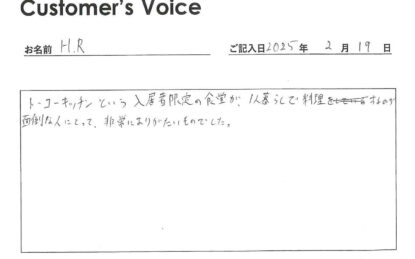 Customer's Voice
お名前 H.R ご記入日 2025 年 2 月 19 日
トーコーキッチンという入居者限定の食堂が、1人暮らしで料理するのが
面倒な人にとって、非常にありがたいものでした。